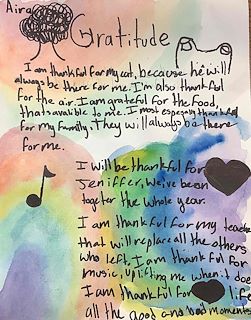 Aira
Gratitude
I am thankful for my cat, because he will
always be there for me. I'm also thankful
for the air. I am grateful for the food,
thats avalible to me. I most especially thankful
for my family. They will always be there
for me.
I will be thankful for
Jeniffer, we've been
together the whole year.
I am thankful for my teache
that will replace all the others
who left. I am thankful for
music, uplifting me when it doe
I am thankful for life
all the good and bad moments